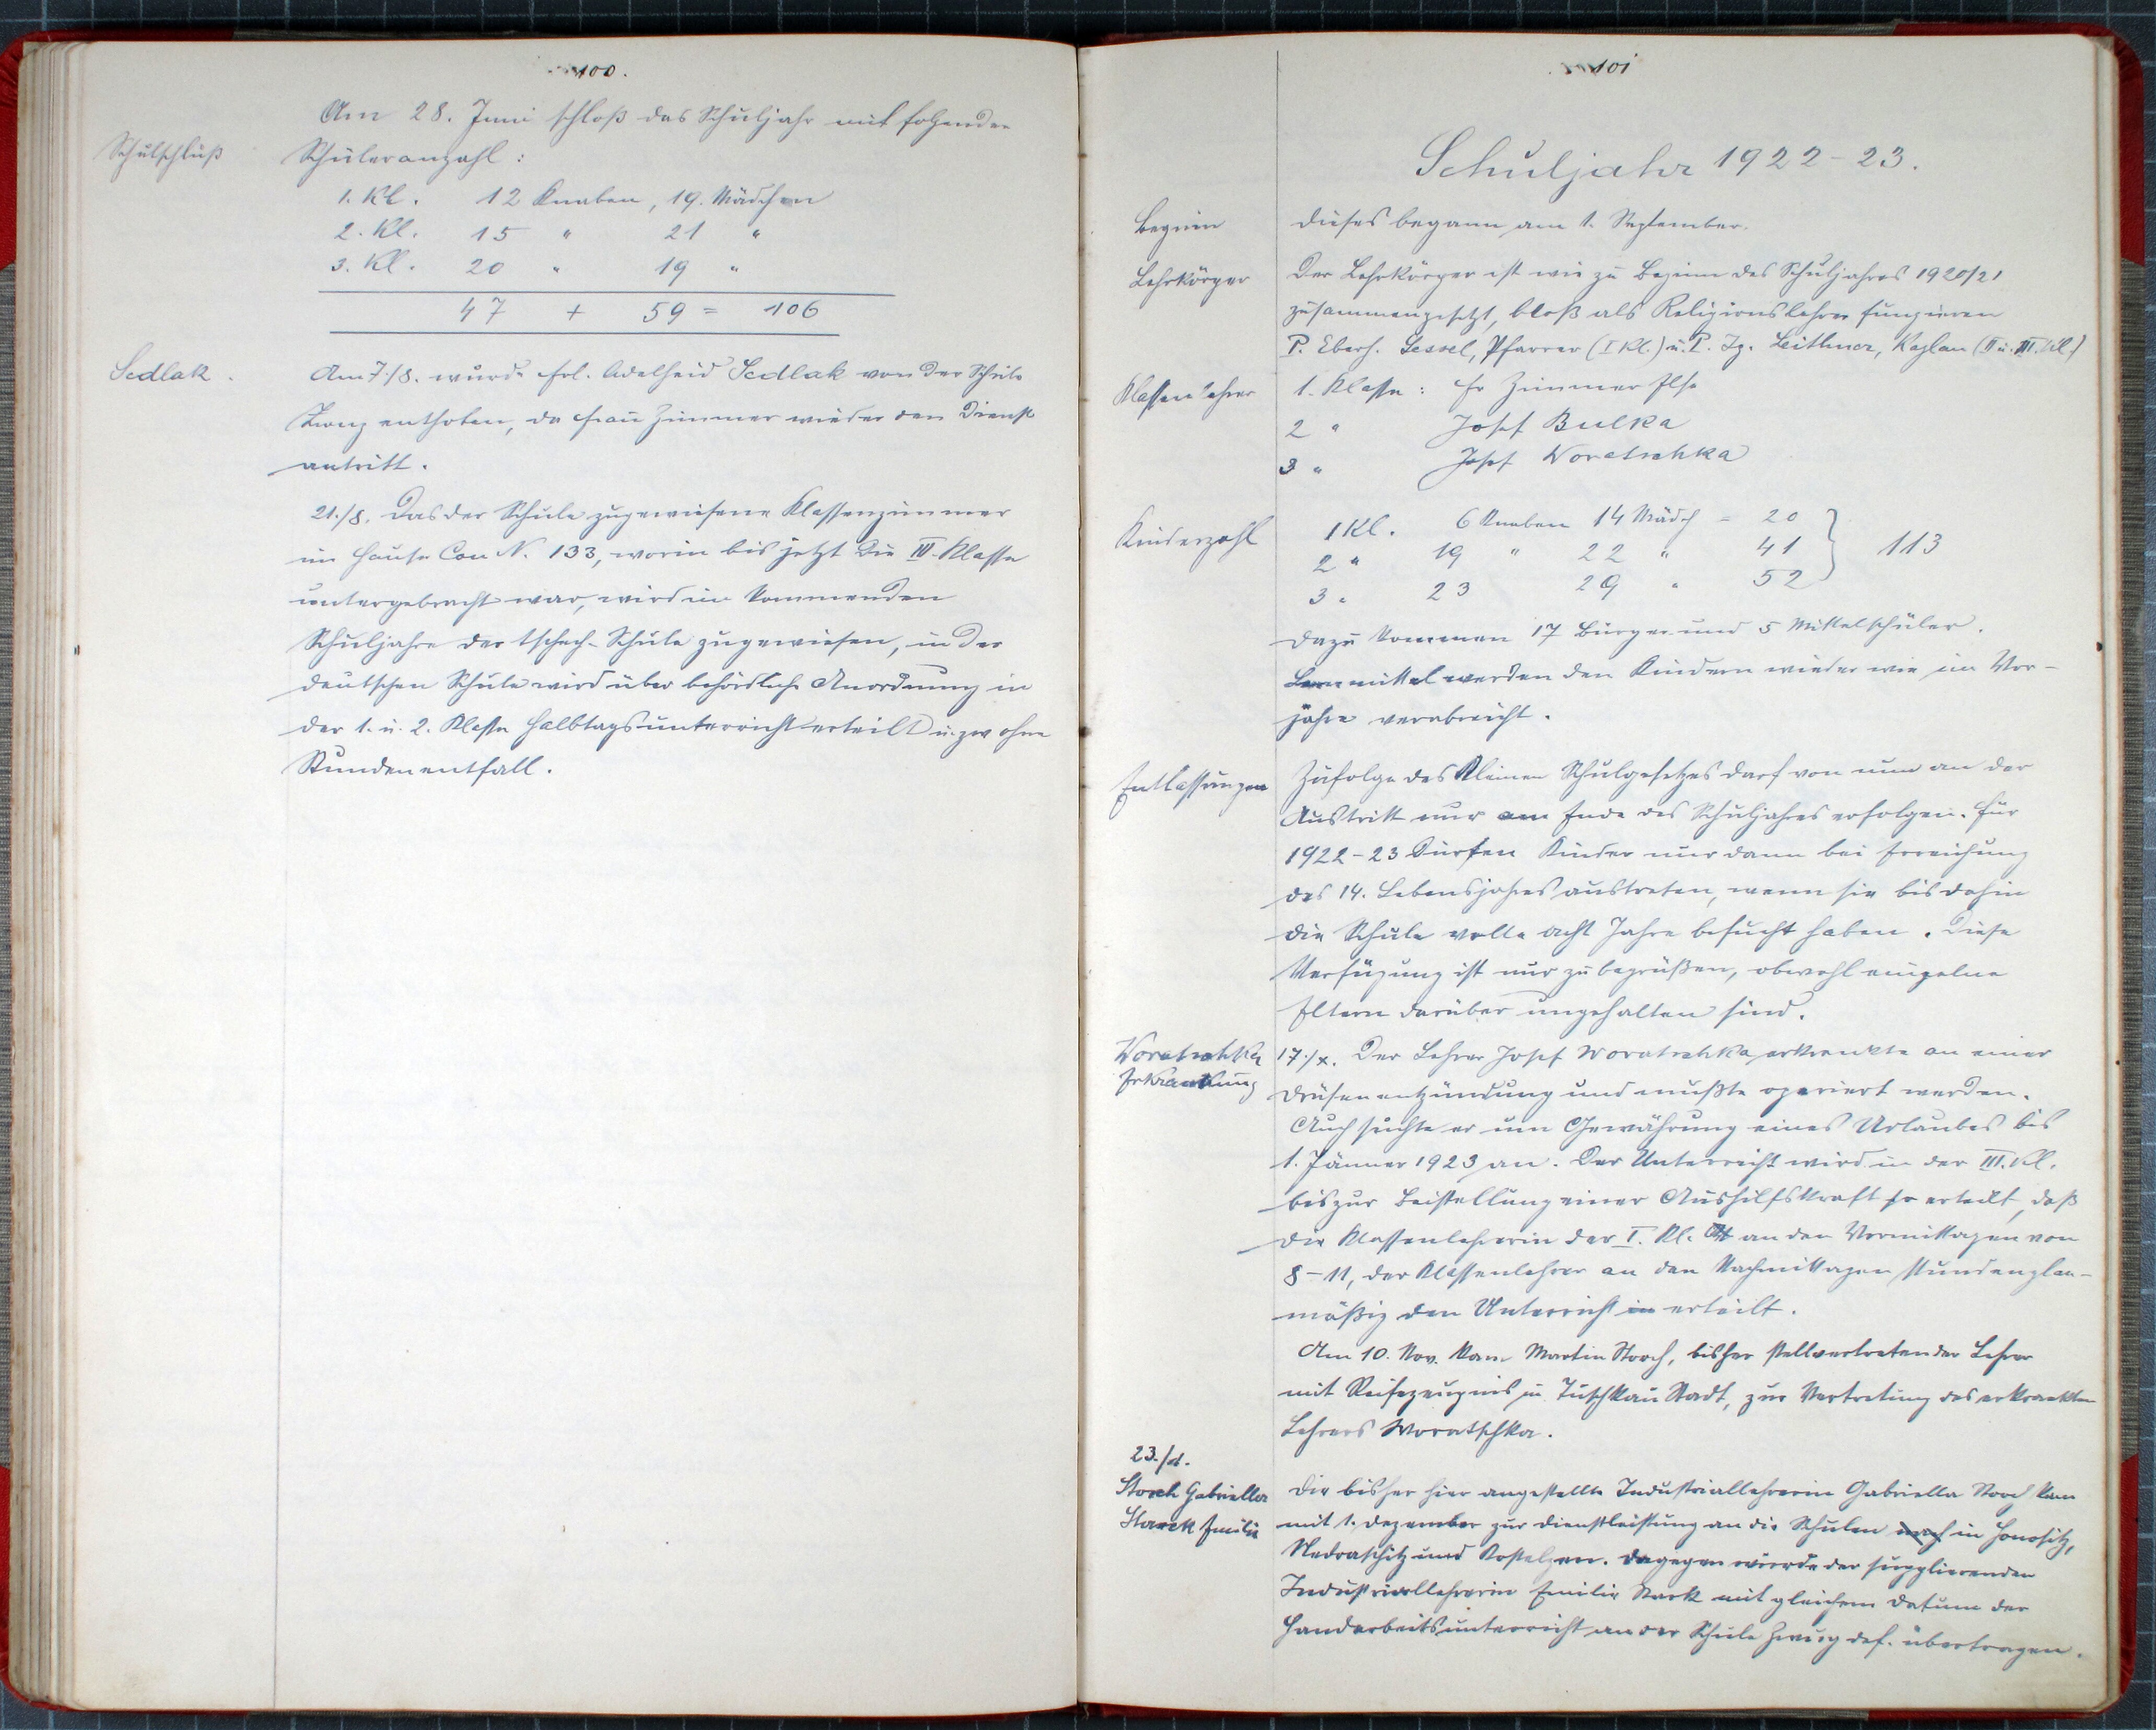 100.
Am 28. Juni schloß das Schuljahr mit folgender
Schulschluß
Schüleranzahl :
1. Kl. 12 Knaben, 19. Mädchen
2. Kl. 15 " 21 "
3. Kl. 20 " 19 "
47 + 59 = 106
Sedlak.
Am 7/8. wurde Frl. Adelheid Sedlak von der Schule
Zwug enthoben, da Frau Zimmer wieder den Dienst
antritt.
21./8. Das der Schule zugewiesene Klassenzimmer
im Hause Con N. 133, worin bis jetzt die III. Klasse
untergebracht war, wird im kommenden
Schuljahre der tschech. Schule zugewiesen, in der
deutschen Schule wird über behördliche Anordnung in
der 1. u. 2. Klasse Halbtagsunterricht erteilt u. zw ohne
Stundenentfall.
101
Schuljahr 1922-23.
Beginn
Dieses begann am 1. September.
Lehrkörper
Der Lehrkörper ist wie zu Beginn des Schuljahres 1920/21
zusammengesetzt, bloß als Religionslehrer fungieren
P. Eberh. Sessel, Pfarrer (I Kl.) u. P. Ig. Leithner, Kaplan (II u. III. Kl.)
Klassenlehrer
1. Klasse : Fr Zimmer Ilse
2 " Josef Bulka
3 " Josef Woratschka
Kinderzahl
1 Kl. 6 Knaben 14 Mädch = 20
2 " 19 " 22 " 41 } 113
3 " 23 29 " 52
Dazu kommen 17 Bürger und 5 Mittelschüler.
Lernmittel werden den Kindern wieder wie im Vor-
jahre verabreicht.
Entlassungen
Zufolge des Kleinen Schulgesetzes darf von nun an der
Austritt nur am Ende des Schuljahres erfolgen. Für
1922-23 dürfen Kinder nur dann bei Erreichung
des 14. Lebensjahres austreten, wenn sie bis dahin
die Schule volle acht Jahre besucht haben. Diese
Verfügung ist nur zu begrüßen, obwohl einzelne
Eltern darüber ungehalten sind.
Woratschka
Erkrankung
17./X. Der Lehrer Josef Woratschka erkrankte an einer
Drüsenentzündung und mußte operiert werden.
Auch suchte er um Gewährung eines Urlaubes bis
1. Jänner 1923 an. Der Unterricht wird in der III. Kl.
bis zur Beistellung einer Aushilfskraft so erteilt, daß
die Klassenlehrerin der I. Kl. an den Vormittagen von
8-11, der Klassenlehrer an den Nachmittagen stundenplan-
mäßig den Unterricht in erteilt.
Am 10. Nov. kam Martin Storch, bisher stellvertretender Lehrer
mit Reifezeugnis in Tuschkau Stadt, zur Vertretung des erkrankten
Lehrers Woratschka.
23./d.
Storch Gabriella
Starck Emilie
Die bisher hier angestellte Industriallehrerin Gabriella Storch kam
mit 1. Dezember zur Dienstleistung an die Schulen nach in Honositz,
Nedraschitz und Kostelzen. Dagegen wurde der supplierenden
Industriallehrerin Emilie Stark mit gleichem Datum der
Handarbeitsunterricht an der Schule Zwug def. übertragen.